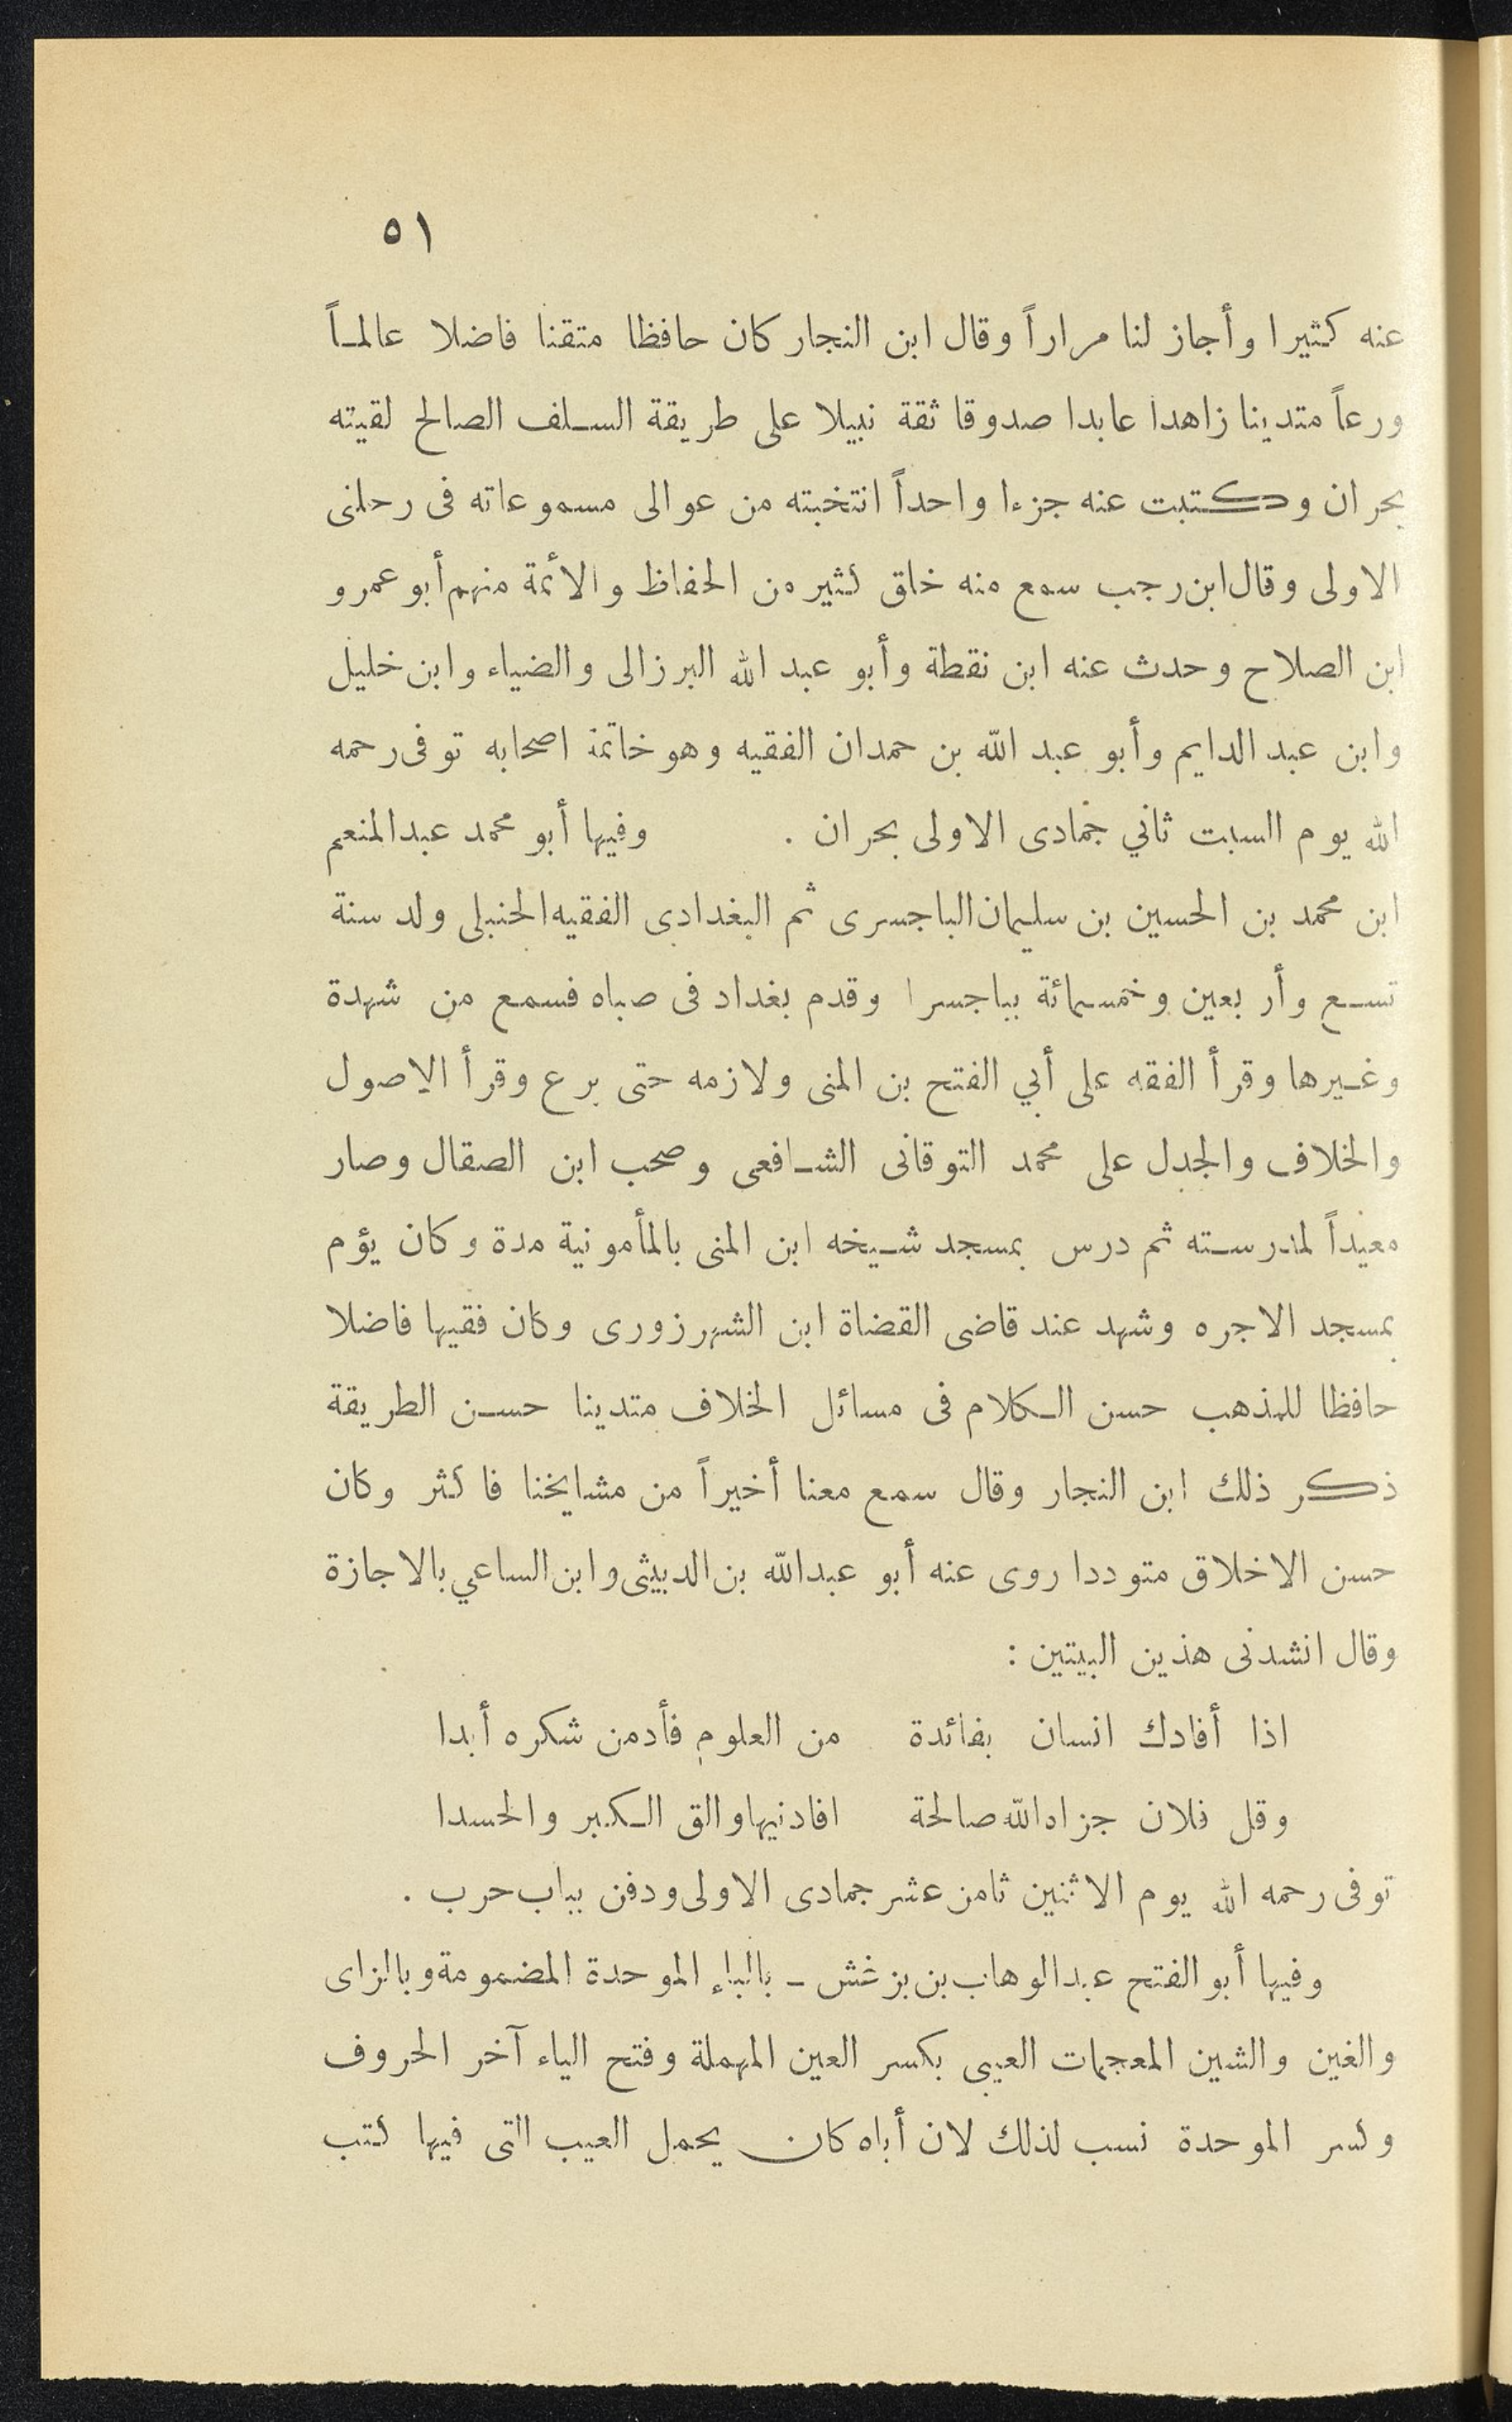 ٥١
عنه كثيرا وأجاز لنا مراراً وقال ابن النجار كان حافظا متقنا فاضلا عالماً
ورعاً متدينا زاهدا عابدا صدوقا ثقة نبيلا على طريقة السلف الصالح لقيته
بحران وكتبت عنه جزءا واحداً انتخبته من عوالى مسموعاته فى رحلتى
الاولى وقال ابن رجب سمع منه خلق كثير من الحفاظ والأئمة منهم أبو عمرو
ابن الصلاح وحدث عنه ابن نقطة وأبو عبد الله البرزالى والضياء وابن خليل
وابن عبد الدايم وأبو عبد الله بن حمدان الفقيه وهو خاتمة اصحابه توفى رحمه
الله يوم السبت ثاني جمادى الاولى بحران . وفيها أبو محمد عبد المنعم
ابن محمد بن الحسين بن سليمان الباجسرى ثم البغدادى الفقيه الحنبلى ولد سنة
تسع وأربعين وخمسمائة بباجسرا وقدم بغداد فى صباه فسمع من شهدة
وغيرها وقرأ الفقه على أبي الفتح بن المنى ولازمه حتى برع وقرأ الاصول
والخلاف والجدل على محمد التوقانى الشافعى وصحب ابن الصقال وصار
معيداً لمدرسته ثم درس بمسجد شيخه ابن المنى بالمأمونية مدة وكان يؤم
بمسجد الاجره وشهد عند قاضى القضاة ابن الشهرزورى وكان فقيها فاضلا
حافظا للمذهب حسن الكلام فى مسائل الخلاف متدينا حسن الطريقة
ذكر ذلك ابن النجار وقال سمع معنا أخيراً من مشايخنا فاكثر وكان
حسن الاخلاق متوددا روى عنه أبو عبد الله بن الدبيثى وابن الساعي بالاجازة
وقال انشدنى هذين البيتين :
اذا أفادك انسان بفائدة من العلوم فأدمن شكره أبدا
وقل فلان جزاه الله صالحة افادنيها والق الكبر والحسدا
توفى رحمه الله يوم الاثنين ثامن عشر جمادى الاولى ودفن بباب حرب .
وفيها أبو الفتح عبد الوهاب بن بزغش ـ بالباء الموحدة المضمومة وبالزاى
والغين والشين المعجمات العيبى بكسر العين المهملة وفتح الياء آخر الحروف
وكسر الموحدة نسب لذلك لان أباه كان يحمل العيب التى فيها كتب